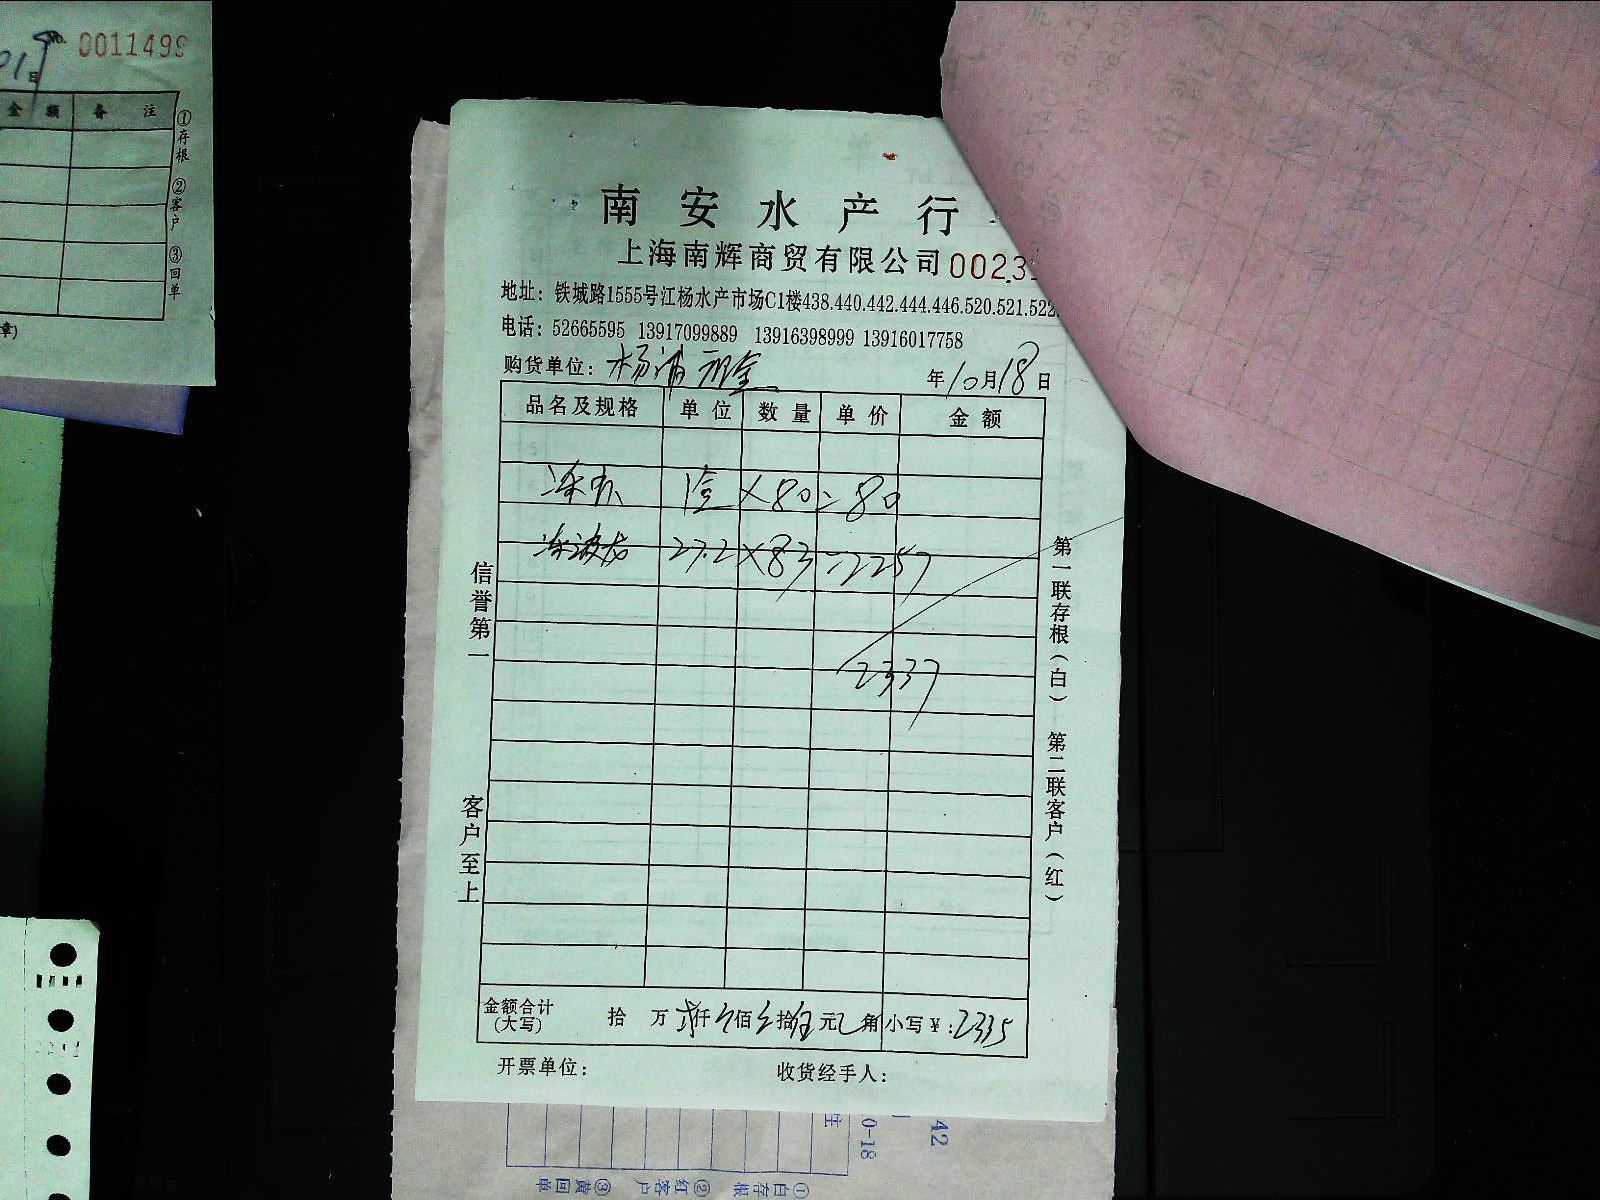 No. 0011499
日
金 额 备 注
①存根 ②客户 ③回单
章)
南安水产行
上海南辉商贸有限公司 0023
地址：铁城路1555号江杨水产市场C1楼438.440.442.444.446.520.521.522.
电话：52665595 13917099889 13916398999 13916017758
购货单位：杨浦
年10月18日
品名及规格 单位 数量 单价 金额
×80=80
冻波龙 27.2×83=2257
2337
信誉第一
客户至上
第一联存根(白) 第二联客户(红)
金额合计(大写) 拾 万 贰仟 佰 拾伍元 角 小写¥：2335
开票单位： 收货经手人：
注
0-18
42
①白存根 ②红客户 ③黄回单